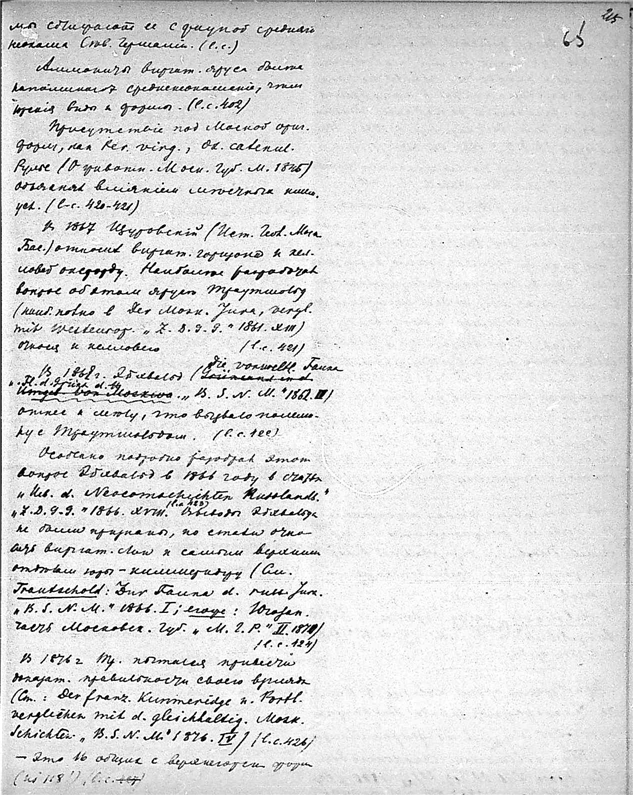 25
65
мы сближает ее с фауной среднего
неокома Сев. Германии. (l.c.)
Аммониты виргат. яруса более
напоминают средненеокомские, чем
юрские виды и формы. (l.c. 402)
Присутствие под Москвой ориг.
форм, как Per. virg.,
Рулье (О животн. Моск. Губ. М. 1845)
объяснял влиянием местных
усл. (l.c. 420-421)
В 1867 Щуровский (Ист. Геол. Моск.
Бас.) относил виргат. горизонт к кел-
ловей оксфорду. Наиболее разработал
вопрос об этом ярусе Траутшольд
(наиб. полно в Der Mosk. Jura, vergl.
mit Westeurop. „Z. D. G. G." 1861. XIII)
относя к келловею (l.c. 421)
В 1861 г. Эйхвальд (Die vorweltl. Fauna
u. Fl. d. Grüns. d.
Umgeb. von Moskwa. „B. S. N. M." 1862. III)
отнес к мелу, что вызвало полеми-
ку с Траутшольдом. (l.c. 422)
Особенно подробно разобрал этот
вопрос Эйхвальд в 1866 году в статье
„Ueb. d. Neocomschichten Russlands."
„Z. D. G. G." 1866. XVIII. (l.c. 423) Выводы Эйхвальда
не были признаны, но стали отно-
сить виргат. слои к самым верхним
отделам юры – киммериджу (См.
Trautschold: Zur Fauna d. russ. Jura.
„B. S. N. M." 1866. I; его же: Юго-зап.
часть Московск. Губ. „М. Г. Р." II. 1870)
(l.c. 424)
В 1876 г Тр. пытался привести
доказат. правильности своего
(См.: Der franz. Kimmeridge u. Portl.
verglichen mit d. gleichaltig. Mosk.
Schichten „B. S. N. M." 1876. IV) (l.c. 426)
– Это 16 общих с верхнеюрск. форм
(из 108!) (l.c.